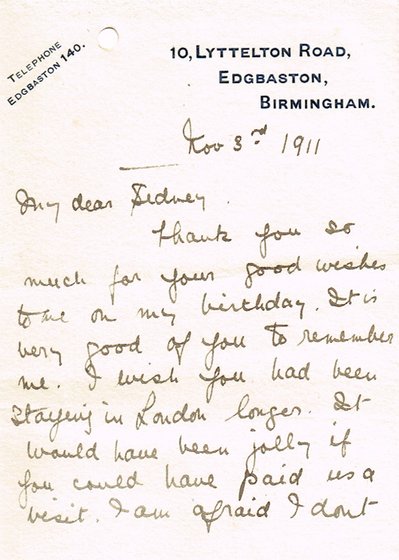 TELEPHONE
EDGBASTON 140.
10, LYTTELTON ROAD,
EDGBASTON,
BIRMINGHAM.
Nov 3rd 1911
My dear Sidney.
Thank you so
much for your good wishes
to me on my birthday. It is
very good of you to remember
me. I wish you had been
staying in London longer. It
would have been jolly if
you could have paid us a
visit. I am afraid I dont